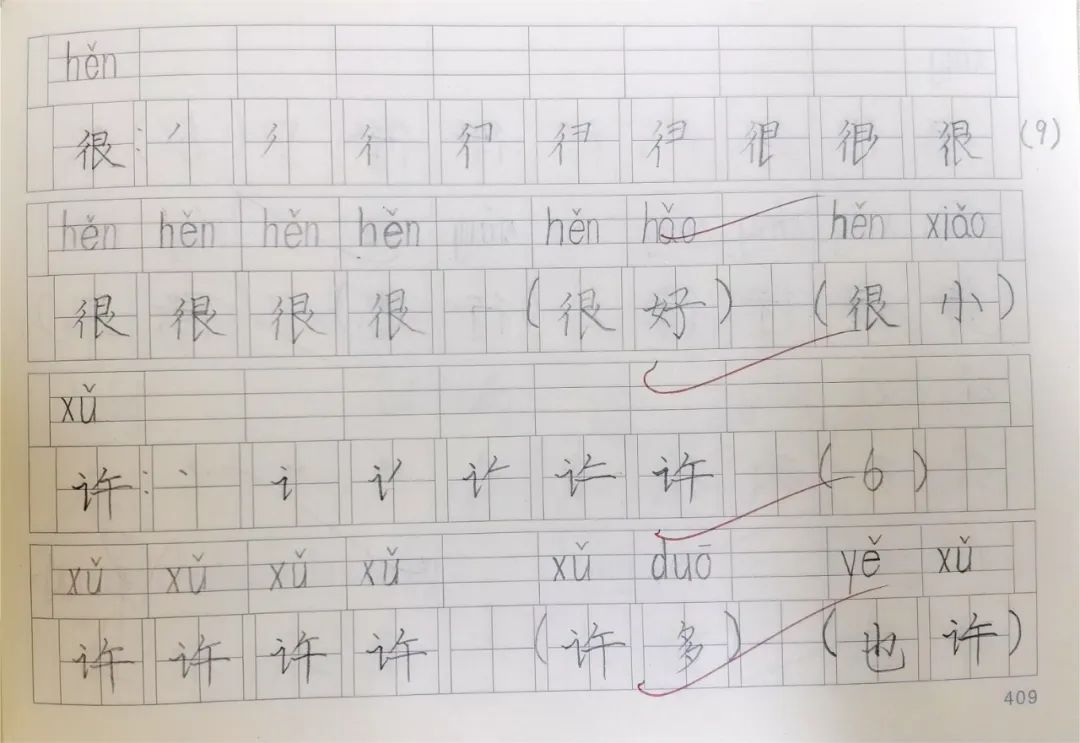 hěn
很: ノ 彳 彳 很 很 很 (9)
hěn hěn hěn hěn hěn hǎo hěn xiǎo
很 很 很 很 (很 好) (很 小)
xǔ
许: 丶 讠 许 (6)
xǔ xǔ xǔ xǔ xǔ duō yě xǔ
许 许 许 许 (许 多) (也 许)
409